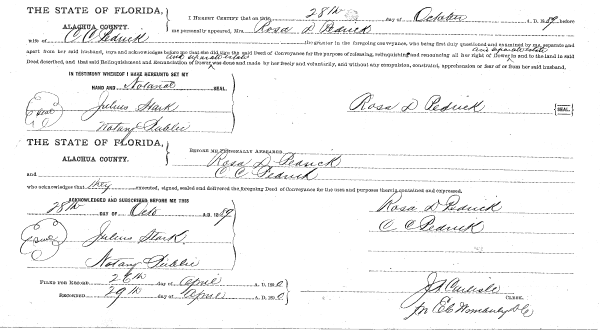 THE STATE OF FLORIDA,
ALACHUA COUNTY.
I HEREBY CERTIFY that on this 28th day of October A. D. 1889, before
me personally appeared, Mrs. Rosa D Pedrick
wife of C C Pedrick the grantor in the foregoing conveyance, who being first duly questioned and examined by me, separate and
apart from her said husband, says and acknowledges before me that she did sign the said Deed of Conveyance for the purpose of releasing, relinquishing and renouncing all her right of Dower and separate estate in and to the land in said
Deed described, and that said Relinquishment and Renunciation of Dower and separate estate was done and made by her freely and voluntarily, and without any compulsion, constraint, apprehension or fear of or from her said husband.
IN TESTIMONY WHEREOF I HAVE HEREUNTO SET MY
HAND AND Notarial SEAL.
Seal Julius Stark
Notary Public
Rosa D Pedrick SEAL.
THE STATE OF FLORIDA,
ALACHUA COUNTY.
BEFORE ME PERSONALLY APPEARED
Rosa D Pedrick
and C C Pedrick
who acknowledges that they executed, signed, sealed and delivered the foregoing Deed of Conveyance for the uses and purposes therein contained and expressed.
ACKNOWLEDGED AND SUBSCRIBED BEFORE ME THIS
28th DAY OF Octo A.D. 1889
Rosa D Pedrick
Seal Julius Stark
C C Pedrick
Notary Public
FILED FOR RECORD 28th day of April A. D. 1890
RECORDED 29th day of April A. D. 1890
J A Carlisle
CLERK.
for